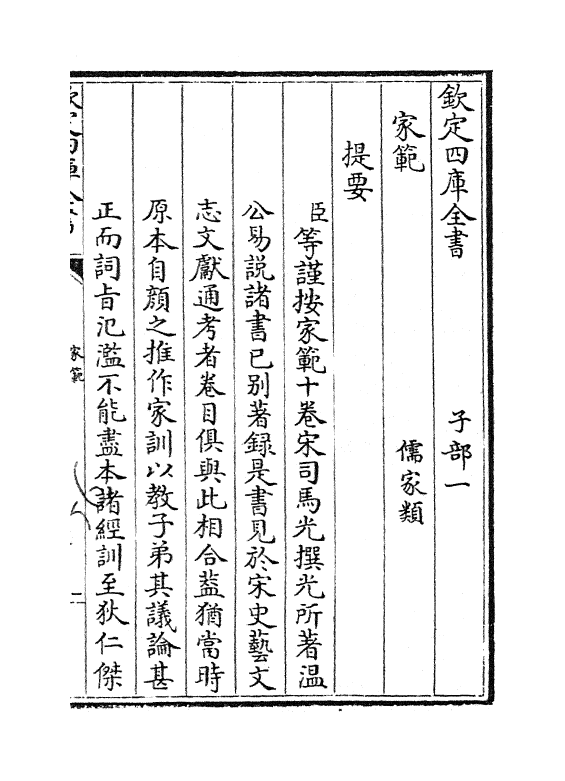 欽定四庫全書　子部一
家範　儒家類
提要
臣等謹按家範十卷宋司馬光撰光所著温
公易說諸書已别著録是書見於宋史藝文
志文獻通考者卷目俱與此相合葢猶當時
原本自顔之推作家訓以教子弟其議論甚
正而詞旨氾濫不能盡本諸經訓至狄仁傑
家範